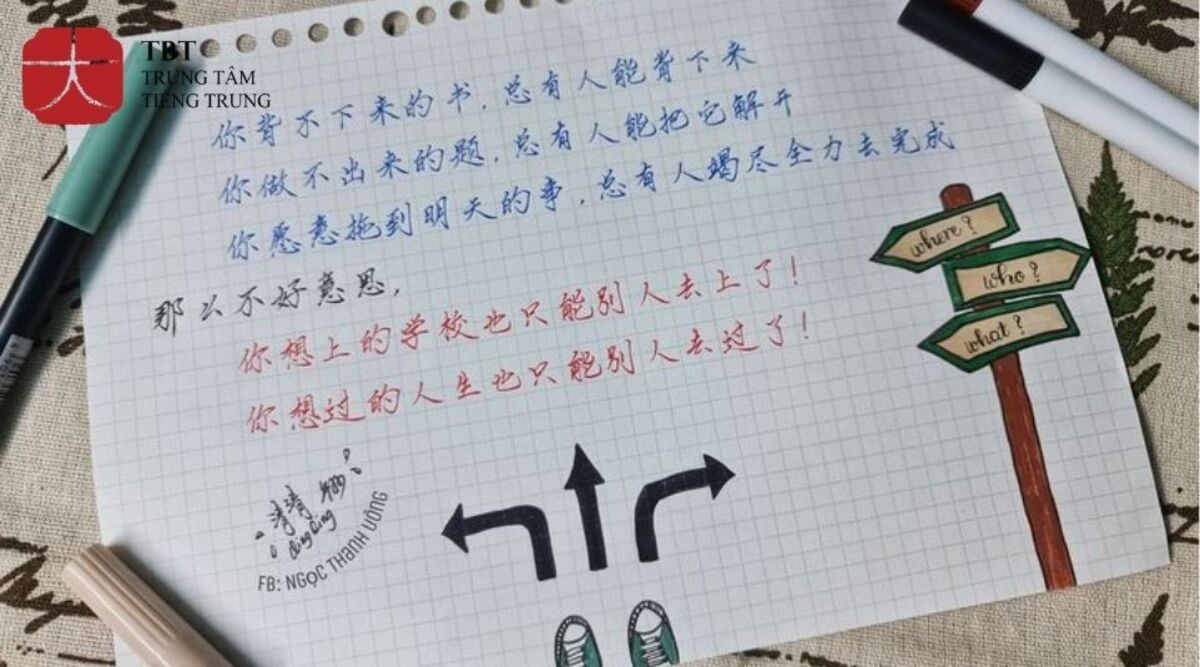 TBT
TRUNG TÂM
TIẾNG TRUNG
你背不下来的书，总有人能背下来
你做不出来的题，总有人能把它解开
你愿意拖到明天的事，总有人竭尽全力去完成
那么不好意思，
你想上的学校也只能别人去上了！
你想过的人生也只能别人去过了！
where?
who?
what?
清清
FB: NGỌC THANH VÒNG